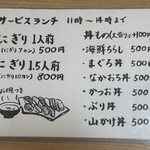 サービスランチ 11時〜14時まで
にぎり1人前
(にぎり7カン) 500円
にぎり1.5人前
(にぎり10カン) 800円
お吸物つき
丼もの(大盛り+100円)
・海鮮ちらし 500円
・まぐろ丼 500円
・なかおち丼 500円
・かつお丼 500円
・ぶり丼 500円
・山かけ丼 500円